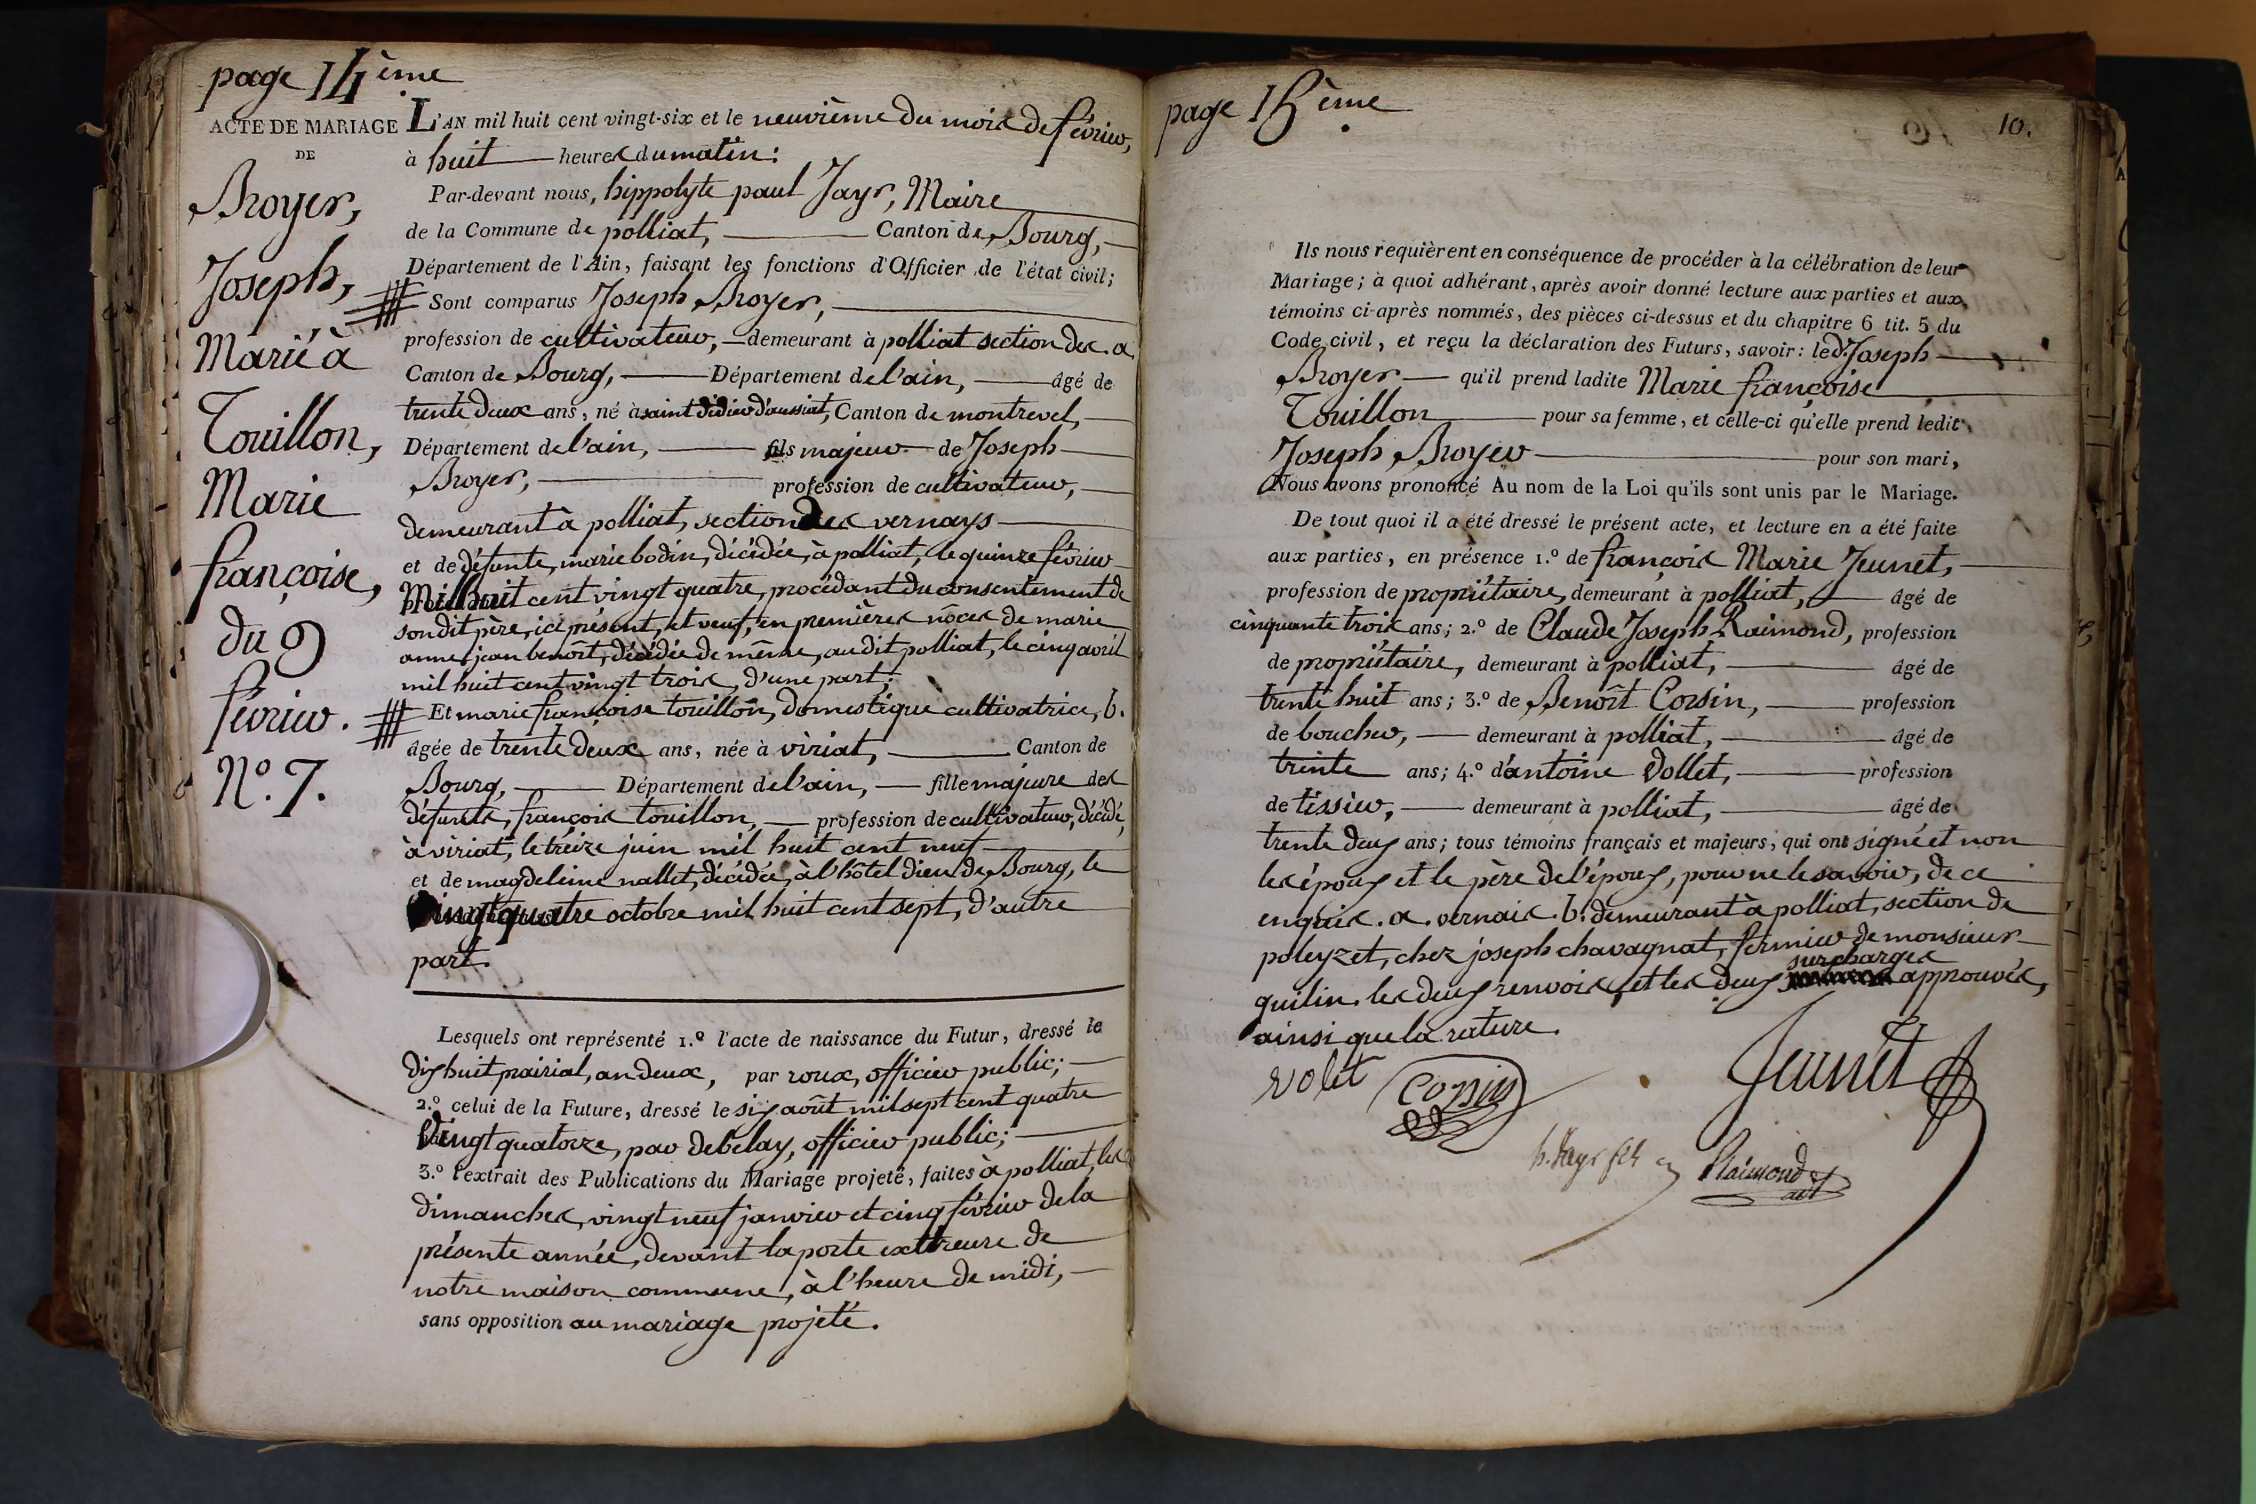 page 14ème
ACTE DE MARIAGE
DE
Broyer,
Joseph,
Marié à
Touillon,
Marie
françoise,
du 9
février.
N.º 7.
L'AN mil huit cent vingt-six et le neuvième du mois de février,
à huit heures du matin:
Par-devant nous, hippolyte paul Jayr, Maire
de la Commune de polliat, Canton de Bourg,
Département de l'Ain, faisant les fonctions d'Officier de l'état civil;
Sont comparus Joseph Broyer,
profession de cultivateur, demeurant à polliat section des .a.
Canton de Bourg, Département de l'ain, âgé de
trente deux ans, né à saint didier d'aussiat, Canton de montrevel,
Département de l'ain, fils majeur de Joseph
Broyer, profession de cultivateur,
demeurant à polliat, section des vernays
et de défunte, marie bodin, décédée, à polliat, le quinze février
Mil huit cent vingt quatre, procédant du consentement de
son dit père, ici présent, et veuf, en premières nôces de marie
anne jean benoît, décédée de même, au dit polliat, le cinq avril
mil huit cent vingt trois, d'une part;
Et marie françoise touillon, domestique cultivatrice, b.
âgée de trente deux ans, née à viriat, Canton de
Bourg, Département de l'ain, fille majeure des
défunts, françois touillon, profession de cultivateur, décédé,
à viriat, le treize juin mil huit cent neuf
et de magdeleine nallet, décédée, à l'hôtel dieu de Bourg, le
vingt quatre octobre mil huit cent sept, d'autre
part.
Lesquels ont représenté 1.º l'acte de naissance du Futur, dressé le
dix huit prairial, an deux, par roux, officier public;
2.º celui de la Future, dressé le six août mil sept cent quatre
Vingt quatorze, par debelay, officier public;
3.º l'extrait des Publications du Mariage projeté, faites à polliat, les
dimanches, vingt neuf janvier et cinq février de la
présente année, devant la porte extéreure de
notre maison commune, à l'heure de midi,
sans opposition au mariage projeté.
page 15ème
10.
Ils nous requièrent en conséquence de procéder à la célébration de leur
Mariage; à quoi adhérant, après avoir donné lecture aux parties et aux
témoins ci-après nommés, des pièces ci-dessus et du chapitre 6 tit. 5 du
Code civil, et reçu la déclaration des Futurs, savoir: led. Joseph
Broyer qu'il prend ladite Marie françoise
Touillon pour sa femme, et celle-ci qu'elle prend ledit
Joseph Broyer pour son mari,
Nous avons prononcé Au nom de la Loi qu'ils sont unis par le Mariage.
De tout quoi il a été dressé le présent acte, et lecture en a été faite
aux parties, en présence 1.º de françois Marie Jeunet,
profession de propriétaire, demeurant à polliat, âgé de
cinquante trois ans; 2.º de Claude Joseph Raimond, profession
de propriétaire, demeurant à polliat, âgé de
trente huit ans; 3.º de Benoît Corsin, profession
de boucher, demeurant à polliat, âgé de
trente ans; 4.º d'antoine Vollet, profession
de tissier, demeurant à polliat, âgé de
trente deux ans; tous témoins français et majeurs, qui ont signé et non
les époux et le père de l'époux, pour ne le savoir, de ce
enquis. a. vernais. b. demeurant à polliat, section de
poleyzet, chez joseph chavagnat, fermier de monsieur
quilin. les deux renvois, et les deux surcharges approuvés,
ainsi que la rature.
volet
Corsin
Jeunet
h. Jayr
Raimond